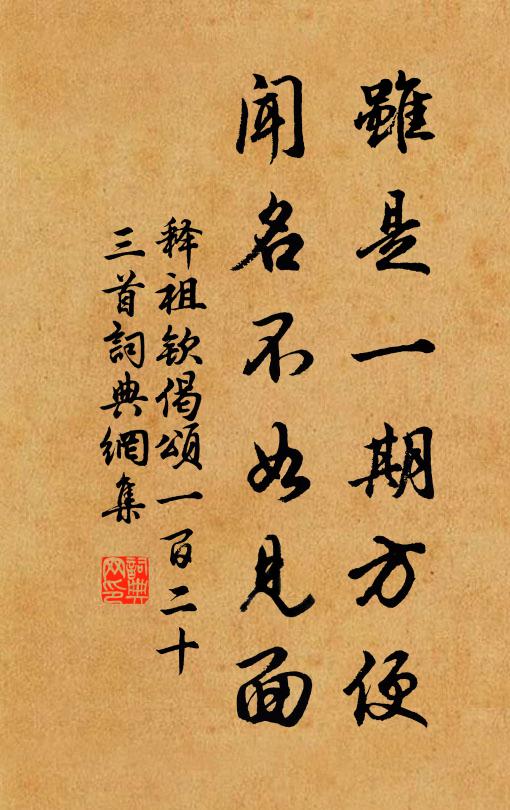 雖是一期方便
聞名不如見面
释祖欽偈頌一百二十
三首詞典網集
詞典网印